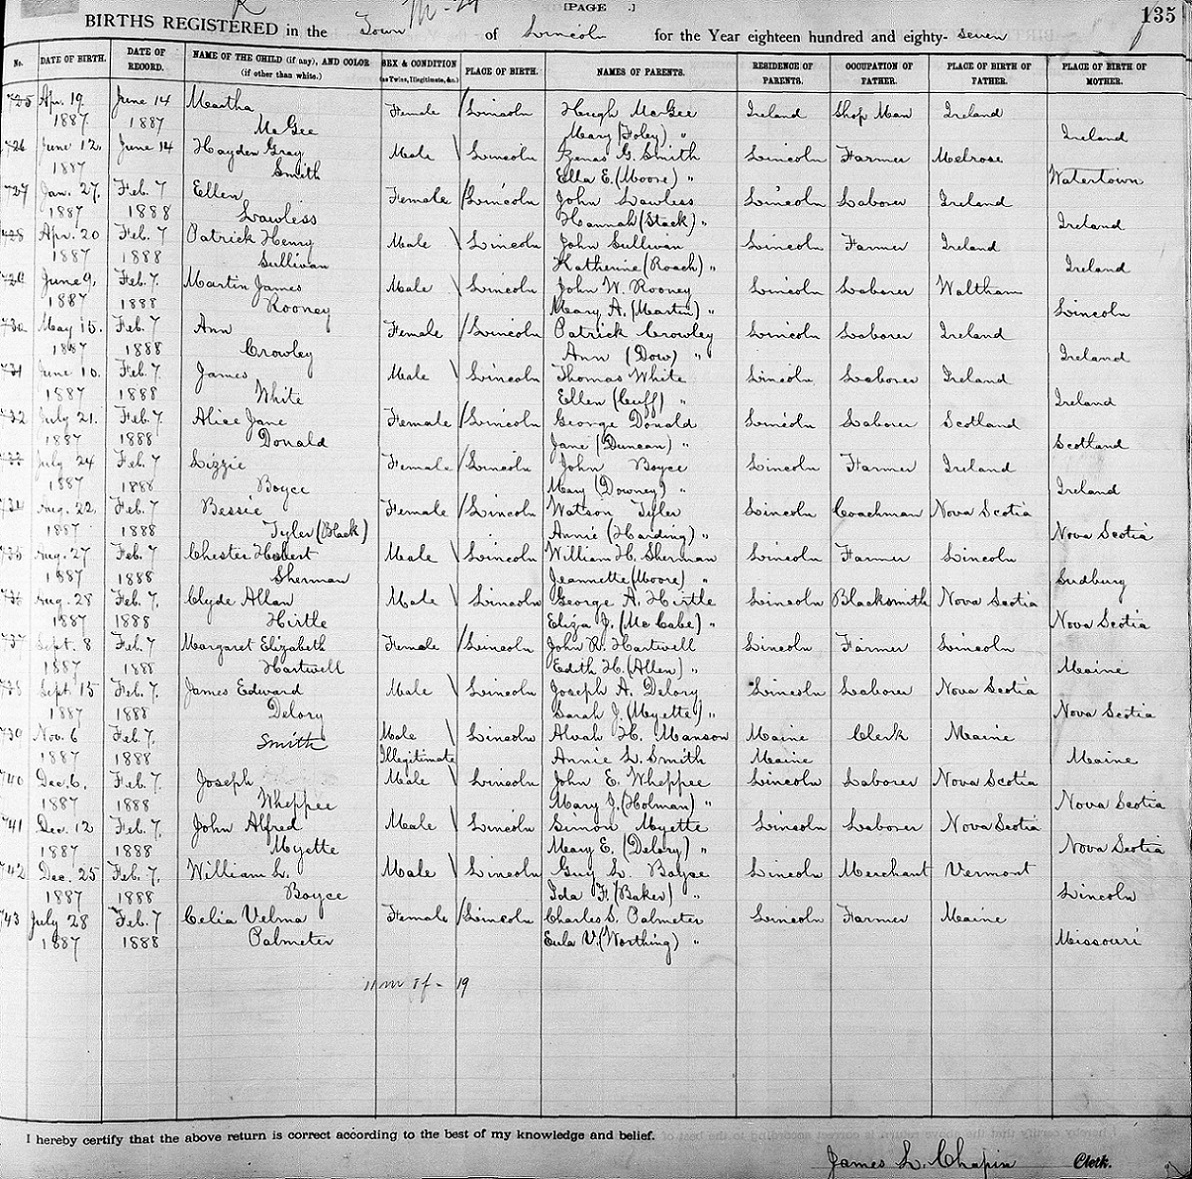 [PAGE .] 135
BIRTHS REGISTERED in the Town of Lincoln for the Year eighteen hundred and eighty-seven
No. DATE OF BIRTH. DATE OF RECORD. NAME OF THE CHILD (if any), AND COLOR (if other than white.) SEX & CONDITION (as Twins, Illegitimate, &c.) PLACE OF BIRTH. NAMES OF PARENTS. RESIDENCE OF PARENTS. OCCUPATION OF FATHER. PLACE OF BIRTH OF FATHER. PLACE OF BIRTH OF MOTHER.
725 Apr. 19 June 14 Martha Female / Lincoln Hugh McGee Ireland Shop Man Ireland
1887 1887 McGee Mary (Foley) " Ireland
726 June 12. June 14 Hayden Gray Male \ Lincoln Zenas G. Smith Lincoln Farmer Melrose
1887 Smith Ella E. (Moore) " Watertown
727 Jan. 27. Feb. 7 Ellen Female / Lincoln John Lawless Lincoln Laborer Ireland
1887 1888 Lawless Hannah (Stack) " Ireland
728 Apr. 20 Feb. 7 Patrick Henry Male \ Lincoln John Sullivan Lincoln Farmer Ireland
1887 1888 Sullivan Katherine (Roach) " Ireland
729 June 9. Feb. 7. Martin James Male \ Lincoln John W. Rooney Lincoln Laborer Waltham
1887 1888 Rooney Mary A. (Martin) " Lincoln
730 May 15. Feb. 7 Ann Female / Lincoln Patrick Crowley Lincoln Laborer Ireland
1887 1888 Crowley Ann (Dow) " Ireland
731 June 10. Feb. 7. James Male \ Lincoln Thomas White Lincoln Laborer Ireland
1887 1888 White Ellen (Cuff) " Ireland
732 July 21. Feb. 7 Alice Jane Female / Lincoln George Donald Lincoln Laborer Scotland
1887 1888 Donald Jane (Duncan) " Scotland
733 July 24 Feb. 7 Lizzie Female / Lincoln John Boyce Lincoln Farmer Ireland
1887 1888 Boyce Mary (Downey) " Ireland
734 Aug. 22. Feb. 7 Bessie Female / Lincoln Watson Tyler Lincoln Coachman Nova Scotia
1887 1888 Tyler (Black) Annie (Harding) " Nova Scotia
735 Aug. 27 Feb. 7 Chester Hobert Male \ Lincoln William H. Sherman Lincoln Farmer Lincoln
1887 1888 Sherman Jeannette (Moore) " Sudbury
736 Aug. 28 Feb. 7. Clyde Allan Male \ Lincoln George A. Hirtle Lincoln Blacksmith Nova Scotia
1887 1888 Hirtle Eliza J. (McCabe) " Nova Scotia
737 Sept. 8 Feb. 7 Margaret Elizabeth Female / Lincoln John R. Hartwell Lincoln Farmer Lincoln
1887 1888 Hartwell Edith H. (Allen) " Maine
738 Sept. 15 Feb. 7. James Edward Male \ Lincoln Joseph A. Delory Lincoln Laborer Nova Scotia
1887 1888 Delory Sarah J. (Myette) " Nova Scotia
739 Nov. 6 Feb 7. Smith Male \ Lincoln Alvah H. Manson Maine Clerk Maine
1887 1888 Illegitimate Annie L. Smith Maine Maine
740 Dec. 6. Feb. 7. Joseph Male \ Lincoln John E. Wheppee Lincoln Laborer Nova Scotia
1887 1888 Wheppee Mary J. (Holman) " Nova Scotia
741 Dec. 12 Feb. 7. John Alfred Male \ Lincoln Simon Myette Lincoln Laborer Nova Scotia
1887 1888 Myette Mary E. (Delory) " Nova Scotia
742 Dec. 25 Feb. 7. William L. Male \ Lincoln Guy L. Boyce Lincoln Merchant Vermont
1887 1888 Boyce Ida F. (Baker) " Lincoln
743 July 28 Feb. 7 Celia Velma Female / Lincoln Charles S. Palmeter Lincoln Farmer Maine
1887 1888 Palmeter Eula V. (Worthing) " Missouri
11 m 8 f - 19
I hereby certify that the above return is correct according to the best of my knowledge and belief.
James L. Chapin Clerk.